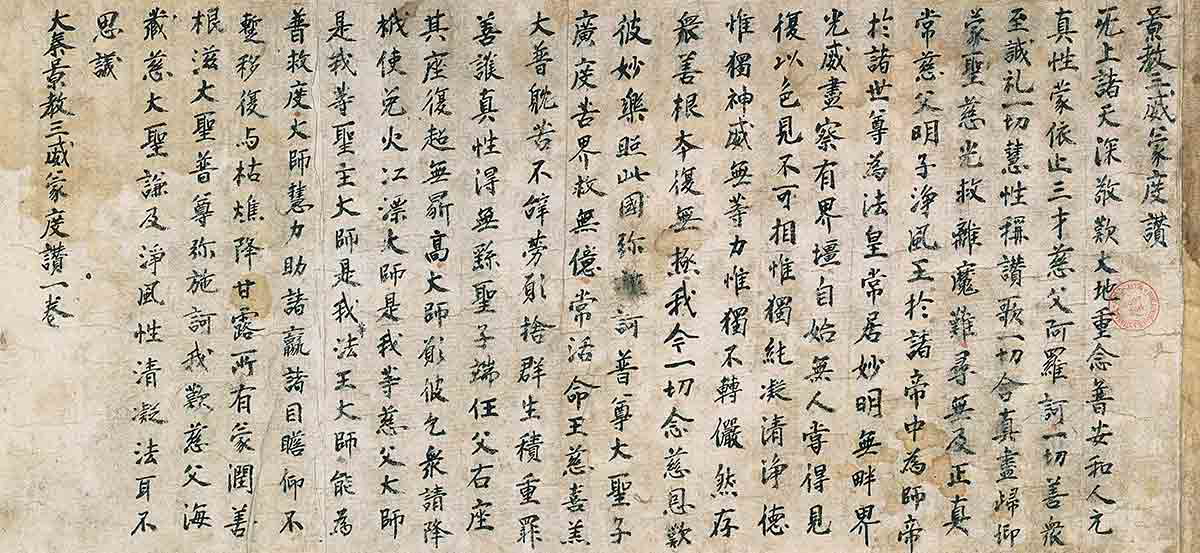 景教三威蒙度讚
无上諸天深敬歎大地重念普安和人元
真性蒙依止三才慈父阿羅訶一切善眾
至誠礼一切慧性稱讚歌一切含真盡歸仰
蒙聖慈光救離魔難尋無及正真
常慈父明子淨風王於諸帝中為師帝
於諸世尊為法皇常居妙明無畔界
光威盡察有界壃自始無人嘗得見
復以色見不可相惟獨純凝清淨德
惟獨神威無等力惟獨不轉儼然存
眾善根本復無極我今一切念慈恩歎
彼妙樂照此國弥訶普尊大聖子
廣度苦界救無億常活命王慈喜羔
大普躭苦不辞勞願捨群生積重罪
善護真性得無繇聖子端任父右座
其座復超無鼎高大師願彼乞眾請降
栰使免火江漂大師是我等慈父大師
是我等聖主大師是我法王大師能為
普救度大師慧力助諸羸諸目瞻仰不
蹔移復与枯燋降甘露所有蒙潤善
根滋大聖普尊弥施訶我歎慈父海
藏慈大聖謙及淨風性清凝法耳不
思議
大秦景教三威蒙度讚一卷